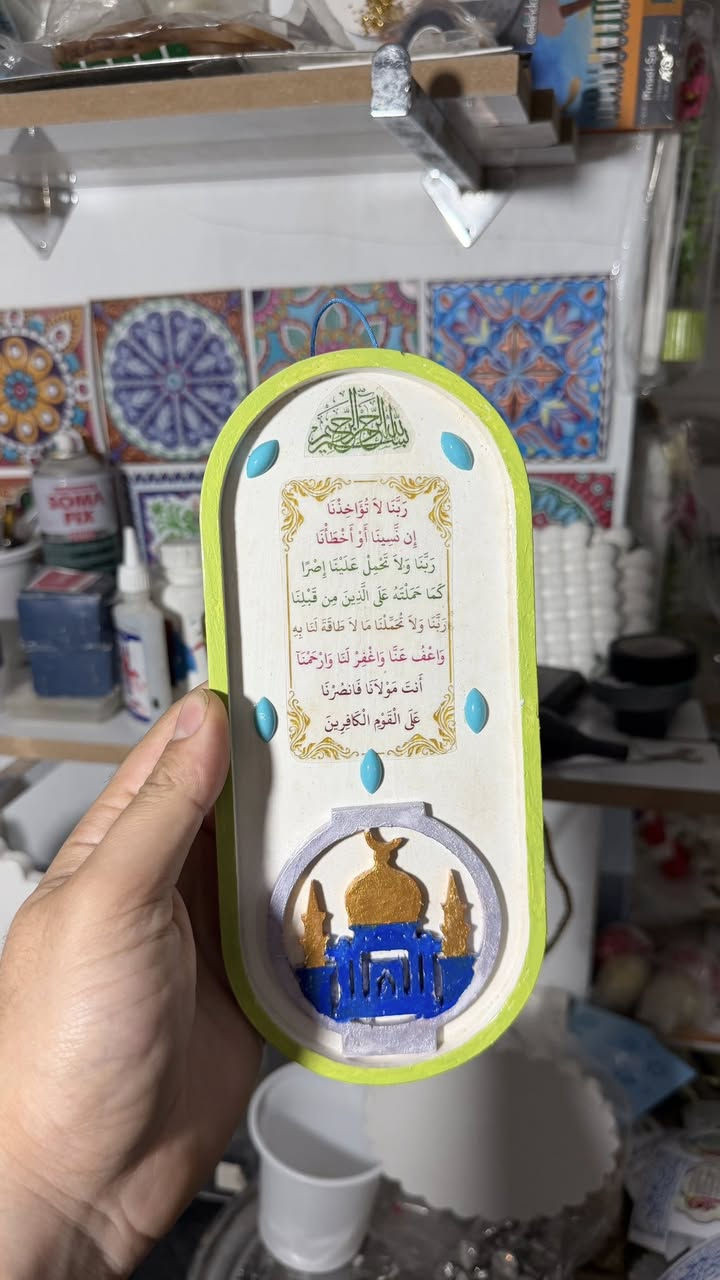 بسم الله الرحمن الرحيم
رَبَّنَا لاَ تُؤَاخِذْنَا
إِن نَّسِينَا أَوْ أَخْطَأْنَا
رَبَّنَا وَلاَ تَحْمِلْ عَلَيْنَا إِصْرًا
كَمَا حَمَلْتَهُ عَلَى الَّذِينَ مِن قَبْلِنَا
رَبَّنَا وَلاَ تُحَمِّلْنَا مَا لاَ طَاقَةَ لَنَا بِهِ
وَاعْفُ عَنَّا وَاغْفِرْ لَنَا وَارْحَمْنَآ
أَنتَ مَوْلاَنَا فَانصُرْنَا
عَلَى الْقَوْمِ الْكَافِرِينَ
SOMA
FIX
Pinsel-Set